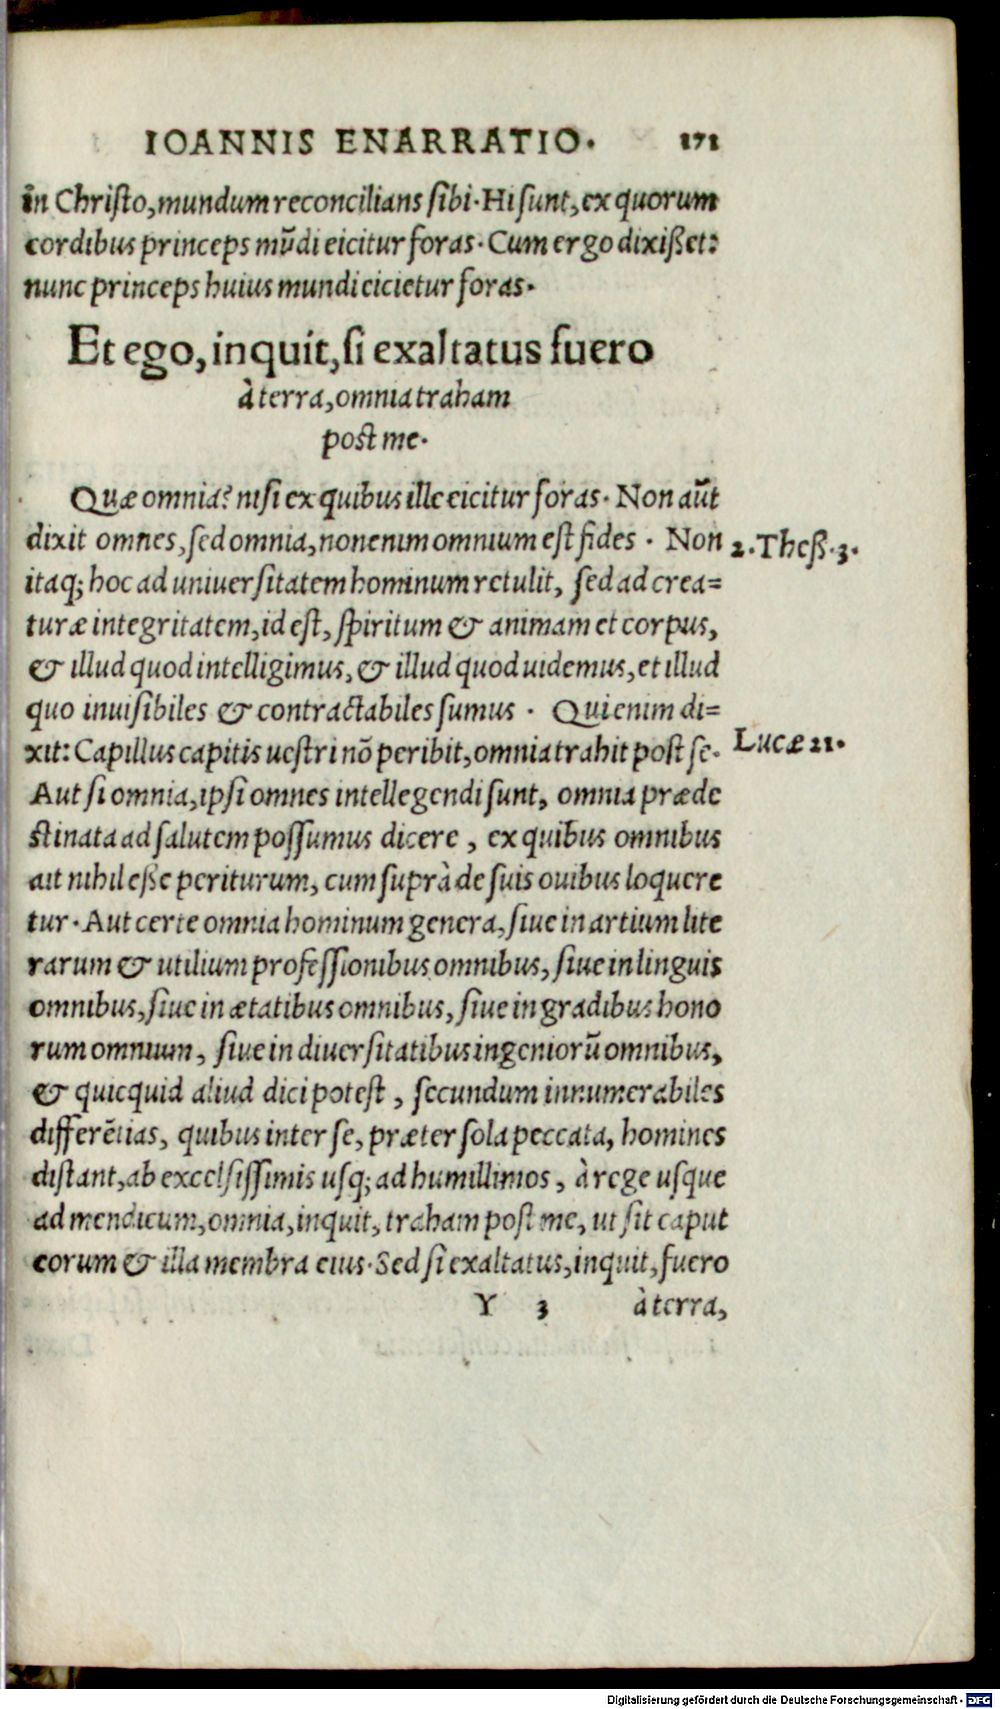 IOANNIS ENARRATIO. 171
in Christo, mundum reconcilians sibi. Hi sunt, ex quorum
cordibus princeps mũdi eicitur foras. Cum ergo dixißet:
nunc princeps huius mundi eicietur foras.
Et ego, inquit, si exaltatus fuero
à terra, omnia traham
post me.
Quæ omnia? nisi ex quibus ille eicitur foras. Non aũt
dixit omnes, sed omnia, non enim omnium est fides. Non
2. Theß. 3.
itaq; hoc ad uniuersitatem hominum retulit, sed ad crea=
turæ integritatem, id est, spiritum & animam et corpus,
& illud quod intelligimus, & illud quod uidemus, et illud
quo inuisibiles & contractabiles sumus. Qui enim di=
xit: Capillus capitis uestri nõ peribit, omnia trahit post se.
Lucæ 21.
Aut si omnia, ipsi omnes intellegendi sunt, omnia præde
stinata ad salutem possumus dicere, ex quibus omnibus
ait nihil eße periturum, cum suprà de suis ouibus loquere
tur. Aut certe omnia hominum genera, siue in artium lite
rarum & utilium professionibus omnibus, siue in linguis
omnibus, siue in ætatibus omnibus, siue in gradibus hono
rum omnium, siue in diuersitatibus ingeniorũ omnibus,
& quicquid aliud dici potest, secundum innumerabiles
differẽtias, quibus inter se, præter sola peccata, homines
distant, ab excelsissimis usq; ad humillimos, à rege usque
ad mendicum, omnia, inquit, traham post me, ut sit caput
eorum & illa membra eius. Sed si exaltatus, inquit, fuero
Y 3 à terra,
Digitalisierung gefördert durch die Deutsche Forschungsgemeinschaft - DFG